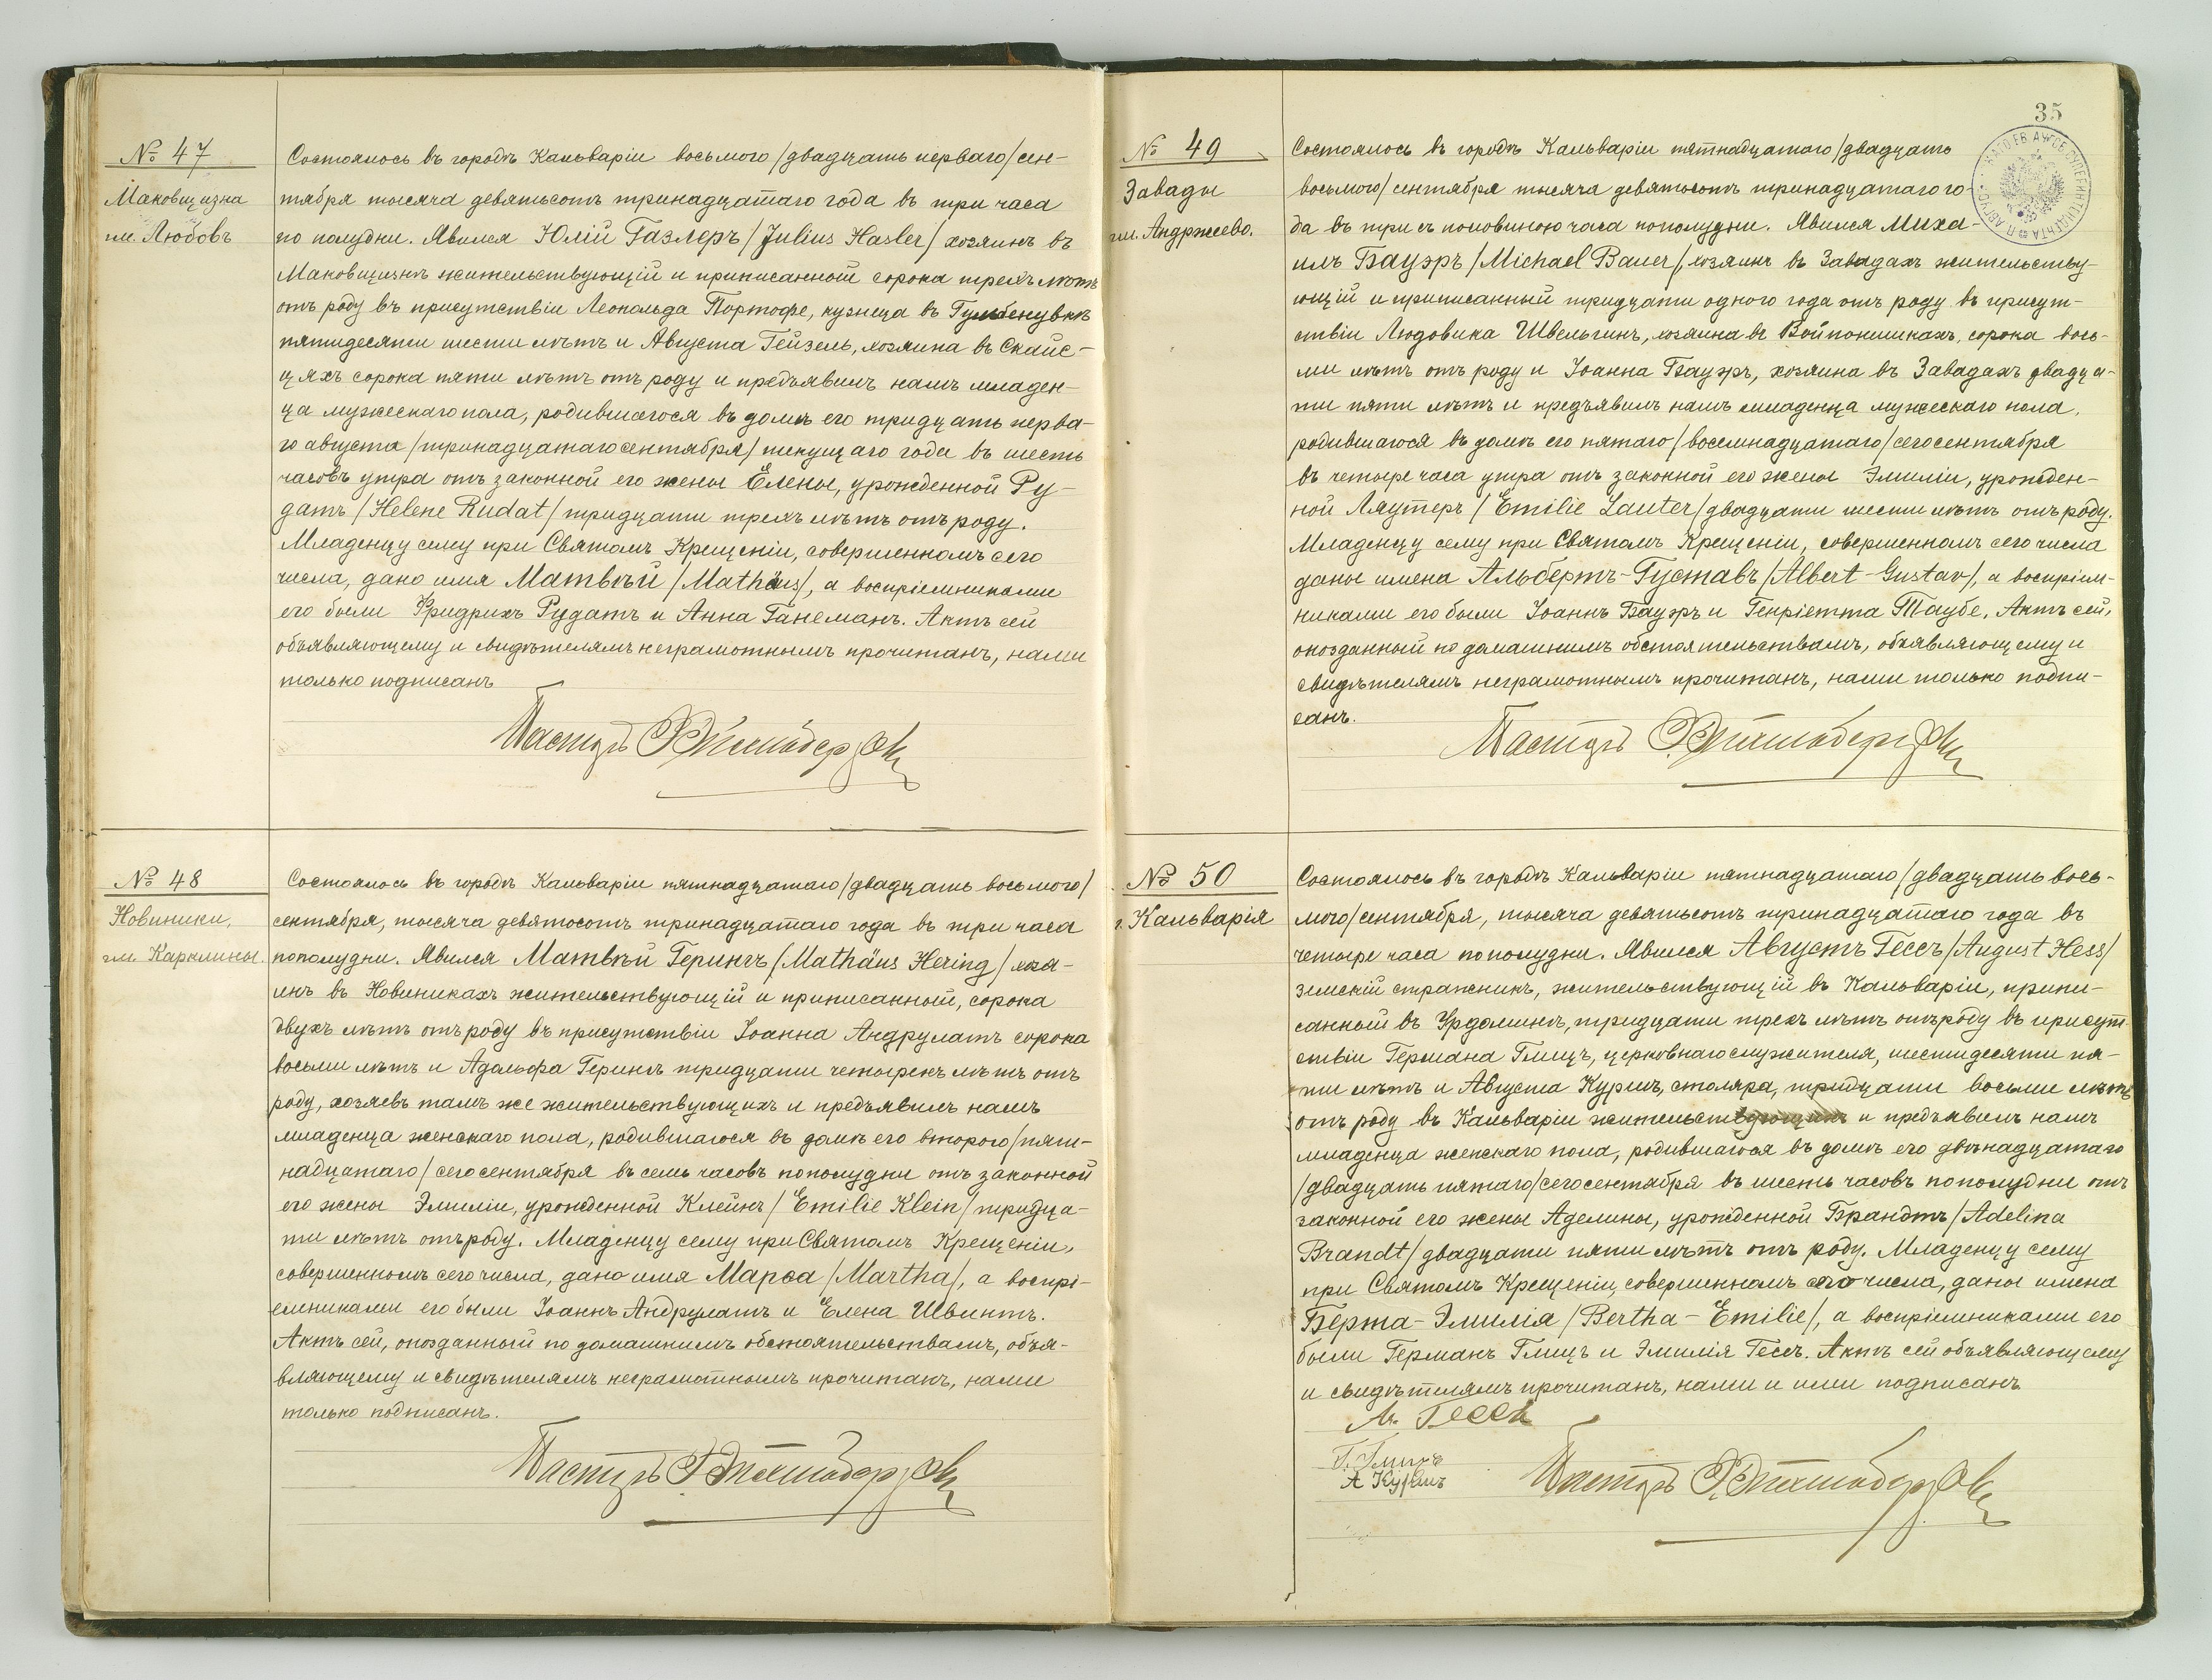 № 47
Маковщизна
гм. Любовъ
Состоялось въ городѣ Кальваріи восьмого /двадцать перваго/ сен-
тября тысяча девятьсотъ тринадцатаго года въ три часа
по полудни. Явился Юлій Газлеръ /Julius Hasler/ хозяинъ въ
Маковщизнѣ жительствующій и приписанный сорока трехъ лѣтъ
отъ роду въ присутствіи Леопольда Портофе, кузнеца въ Гумбенувкѣ
пятидесяти шести лѣтъ и Августа Гейзель, хозяина въ Скайс-
цяхъ сорока пяти лѣтъ отъ роду и предъявилъ намъ младен-
ца мужескаго пола, родившагося въ домѣ его тридцать перва-
го августа /тринадцатаго сентября/ текущаго года въ шесть
часовъ утра отъ законной его жены Елены, урожденной Ру-
датъ /Helene Rudat/ тридцати трехъ лѣтъ отъ роду.
Младенцу сему при Святомъ Крещеніи, совершенномъ сего
числа, дано имя Матвѣй /Mathäus/, а воспріемниками
его были Фридрихъ Рудатъ и Анна Ганеманъ. Актъ сей
объявляющему и свидѣтелямъ неграмотнымъ прочитанъ, нами
только подписанъ
Пасторъ
№ 48
Новиники,
гм. Карклины
Состоялось въ городѣ Кальваріи пятнадцатаго /двадцать восьмого/
сентября, тысяча девятосотъ тринадцатаго года въ три часа
пополудни. Явился Матвѣй Герингъ /Mathäus Hering/ хозя-
инъ въ Новиникахъ жительствующій и приписанный, сорока
двухъ лѣтъ отъ роду въ присутствіи Іоанна Андрулатъ сорока
восьми лѣтъ и Адольфа Герингъ тридцати четырехъ лѣтъ отъ
роду, хозяевъ тамъ же жительствующихъ и предъявилъ намъ
младенца женскаго пола, родившагося въ домѣ его второго /пят-
надцатаго/ сего сентября въ семь часовъ пополудни отъ законной
его жены Эмиліи, урожденной Клейнъ /Emilie Klein/ тридца-
ти лѣтъ отъ роду. Младенцу сему при Святомъ Крещеніи,
совершенномъ сего числа, дано имя Марѳа /Martha/, а воспрі-
емниками его были Іоаннъ Андрулатъ и Елена Швинтъ.
Актъ сей, опозданный по домашнимъ обстоятельствамъ, объя-
вляющему и свидѣтелямъ неграмотнымъ прочитанъ, нами
только подписанъ.
Пасторъ
35
№ 49
Завады
гм. Андржеево.
Состоялось въ городѣ Кальваріи пятнадцатаго /двадцать
восьмого/ сентября тысяча девятьсотъ тринадцатаго го-
да въ три съ половиною часа пополудни. Явился Миха-
илъ Бауэръ /Michael Bauer/, хозяинъ въ Завадахъ жительству-
ющій и приписанный тридцати одного года отъ роду въ присут-
ствіи Людовика Швельгинъ, хозяина въ Войпонишкахъ, сорока вось-
ми лѣтъ отъ роду и Іоанна Бауэръ, хозяина въ Завадахъ двадца-
ти пяти лѣтъ и предъявилъ намъ младенца мужескаго пола,
родившагося въ домѣ его пятаго /восемнадцатаго/ сего сентября
въ четыре часа утра отъ законной его жены Эмиліи, урожден-
ной Ляутеръ /Emilie Lauter/ двадцати шести лѣтъ отъ роду.
Младенцу сему при Святомъ Крещеніи, совершенномъ сего числа
даны имена Альбертъ-Густавъ /Albert-Gustav/, а воспріем-
никами его были Іоаннъ Бауэръ и Генріетта Таубе. Актъ сей,
опозданный по домашнимъ обстоятельствамъ, объявляющему и
свидѣтелямъ неграмотнымъ прочитанъ, нами только подпи-
санъ.
Пасторъ
№ 50
г. Кальварія
Состоялось въ городѣ Кальваріи пятнадцатаго /двадцать вось-
мого/ сентября, тысяча девятьсотъ тринадцатаго года въ
четыре часа пополудни. Явился Августъ Гессъ /August Hess/
земскій стражникъ, жительствующій въ Кальваріи, припи-
санный въ Урдоминѣ, тридцати трехъ лѣтъ отъ роду въ присут-
ствіи Германа Глицъ, церковнаго служителя, шестидесяти пя-
ти лѣтъ и Августа Куришъ, столяра, тридцати восьми лѣтъ
отъ роду въ Кальваріи жительствующихъ и предъявилъ намъ
младенца женскаго пола, родившагося въ домѣ его двѣнадцатаго
/двадцать пятаго/ сего сентября въ шесть часовъ пополудни отъ
законной его жены Аделины, урожденной Брандтъ /Adelina
Brandt/ двадцати пяти лѣтъ отъ роду. Младенцу сему
при Святомъ Крещеніи, совершенномъ сего числа, даны имена
Берта-Эмилія /Bertha-Emilie/, а воспріемниками его
были Германъ Глицъ и Эмилія Гессъ. Актъ сей объявляющему
и свидѣтелямъ прочитанъ, нами и ими подписанъ
А. Гессъ
Г. Глицъ
А Куришъ
Пасторъ